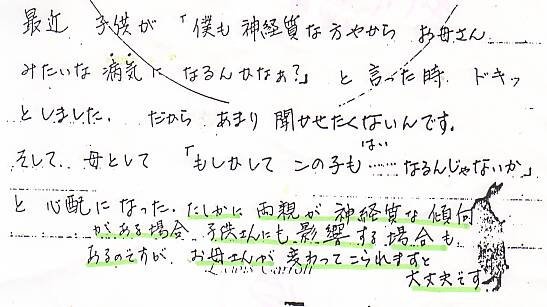 最近 子供が 「僕も神経質な方やから お母さん
みたいな病気に なるんかなぁ?」 と 言った時 ドキッ
としました. だから あまり 聞かせたくないんです.
はい
そして. 母として 「もしかして この子も……なるんじゃないか」
と 心配になった. たしかに 両親が 神経質な傾向
がある場合 子供さんにも 影響する場合も
あるのですが、 お母さんが 変わってこられますと
大丈夫です
Lewis Carroll